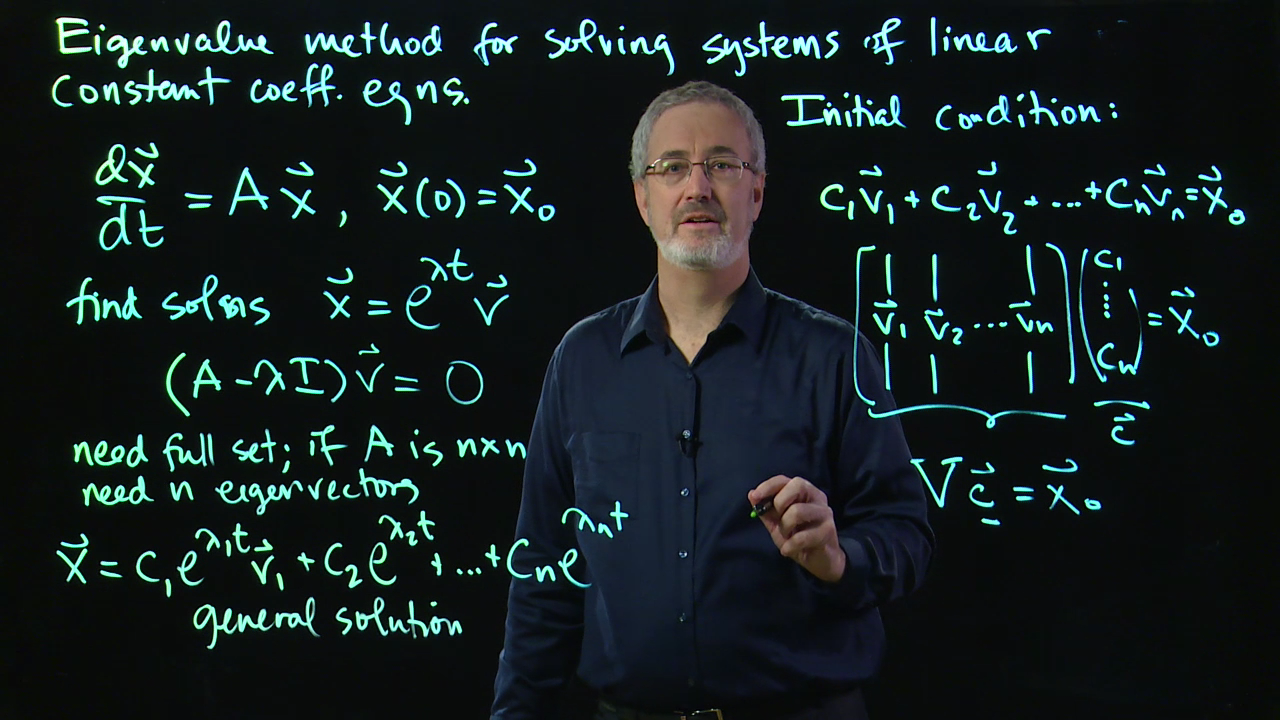 Eigenvalue method for solving systems of linear
constant coeff. eqns.
dx⃗/dt = A x⃗, x⃗(0) = x⃗₀
find solns x⃗ = e^{λt} v⃗
(A - λI) v⃗ = 0
need full set; if A is n×n
need n eigenvectors
x⃗ = c₁e^{λ₁t} v⃗₁ + c₂e^{λ₂t} + ... + cₙe^{λₙt}
general solution
Initial condition:
c₁v⃗₁ + c₂v⃗₂ + ... + cₙv⃗ₙ = x⃗₀
[v⃗₁ v⃗₂ ... v⃗ₙ] (c₁ ⋮ cₙ) = x⃗₀
c⃗
V c⃗ = x⃗₀